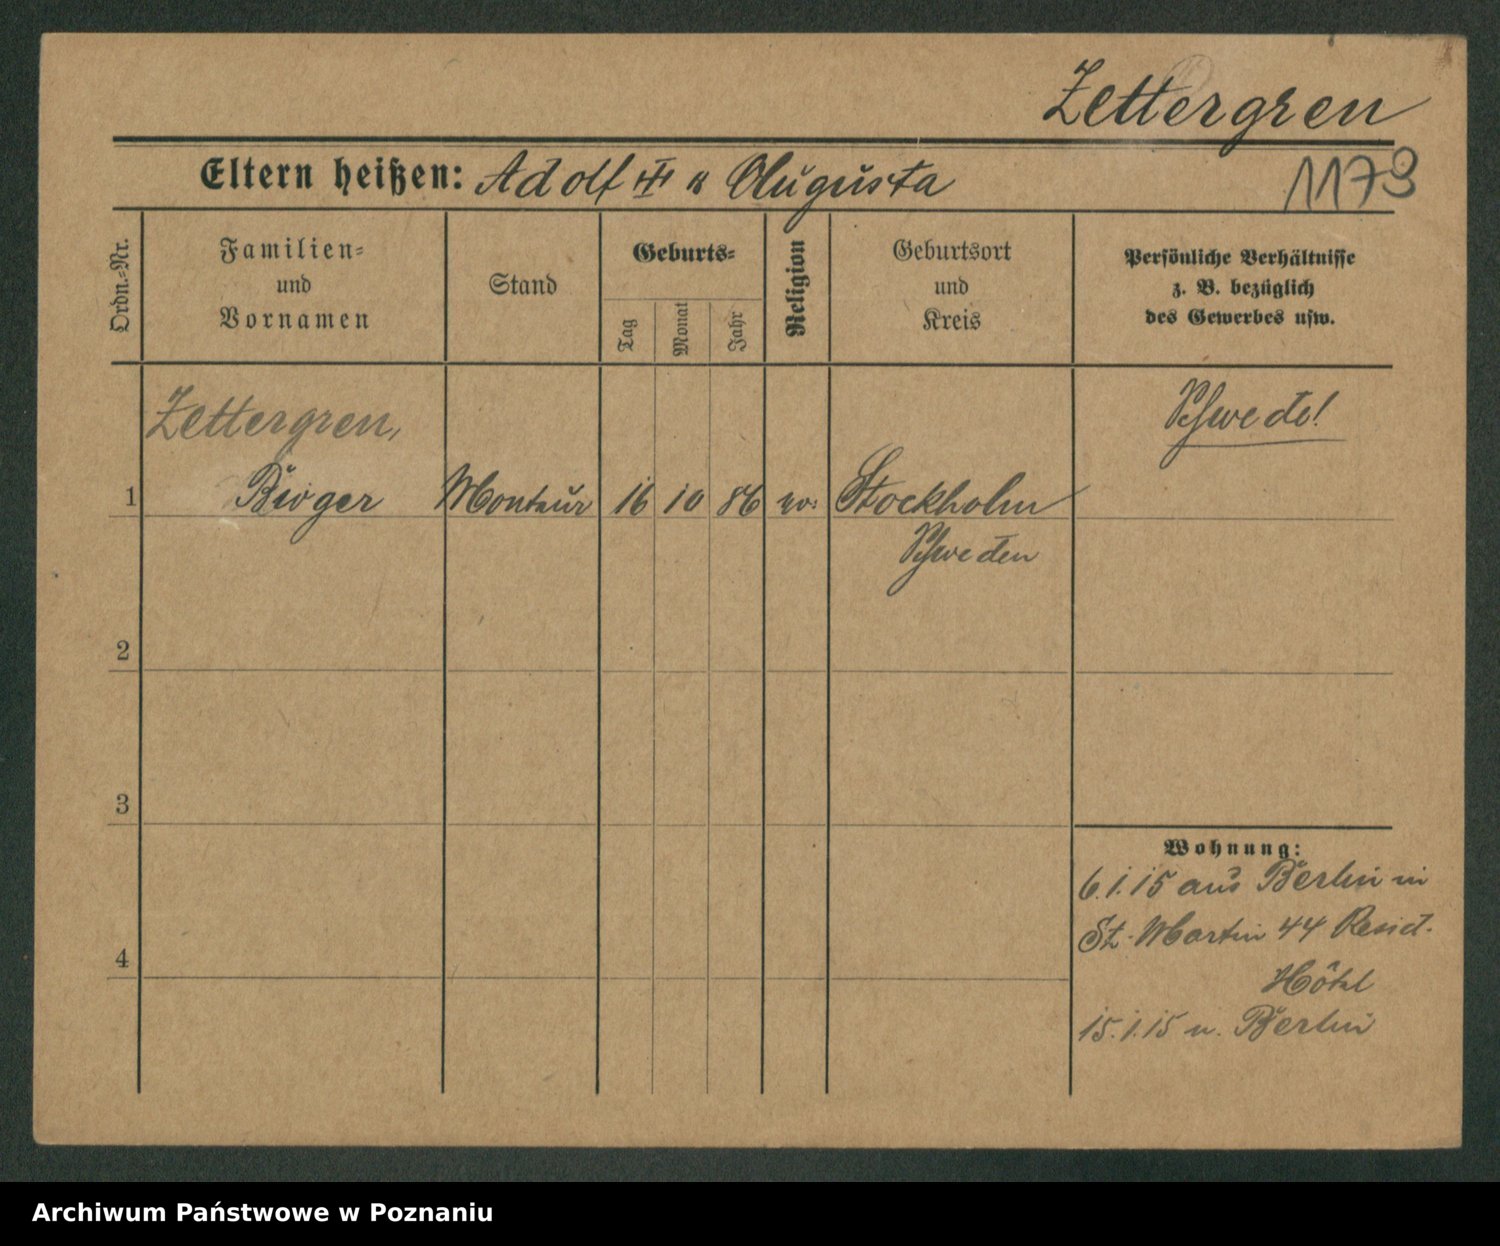 Zettergren
Eltern heißen: Adolf ☩ u Augusta
1173
Ordn.-Nr.
Familien-
und
Vornamen
Stand
Geburts-
Tag
Monat
Jahr
Religion
Geburtsort
und
Kreis
Persönliche Verhältnisse
z. B. bezüglich
des Gewerbes usw.
Zettergren,
Schwede!
1 Birger Monteur 16 10 86 ev. Stockholm
Schweden
2
3
Wohnung:
6.1.15 aus Berlin in
St. Martin 44 Resid.
4
Hôtel
15.1.15 n. Berlin
Archiwum Państwowe w Poznaniu